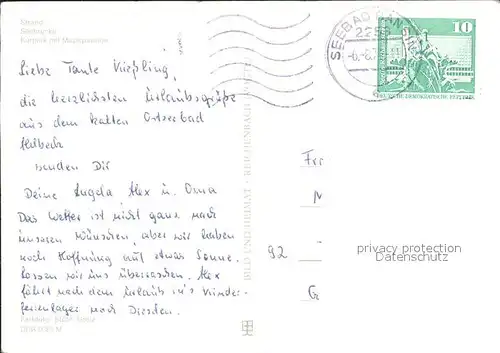 Strand
Seebrücke
Liebe Tante
die herzlichsten Urlaubsgrüße
aus dem kalten Ostseebad
senden Dir
Deine Angela, Alex u. Oma
Das Wetter ist nicht ganz nach
unseren Wünschen, aber wir haben
noch Hoffnung auf etwas Sonne.
Lassen wir uns überraschen. Alex
fährt nach dem Urlaub ins Kinder-
ferienlager nach Dresden.
BILD UND HEIMAT REICHENBACH
SEEBAD BANSIN
10
DEUTSCHE DEMOKRATISCHE REPUBLIK
92
privacy protection
Datenschutz